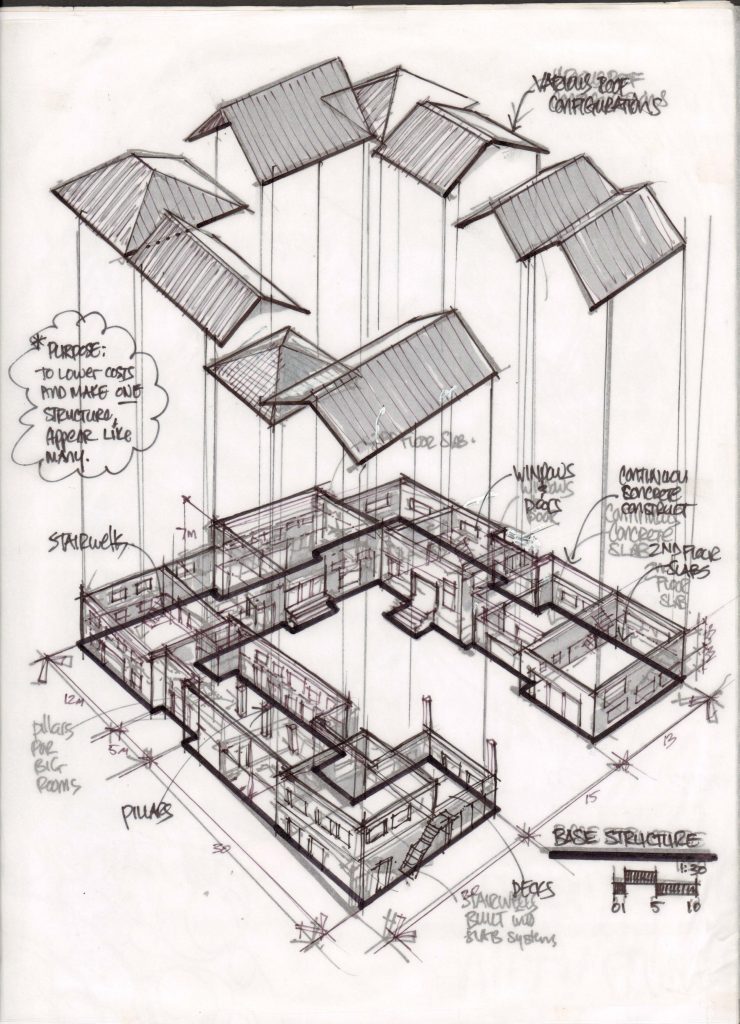 VARIOUS ROOF
CONFIGURATIONS
* PURPOSE:
TO LOWER COSTS
AND MAKE ONE
STRUCTURE
APPEAR LIKE
MANY.
FLOOR SLAB.
WINDOWS
&
DOORS
CONTINUOU
CONCRETE
CONSTRUCT
CONTINUOUS
CONCRETE
SLAB
2ND FLOOR
SLABS
FLOOR
SLAB.
STAIRWELL
7M
12M
5M
PILLARS
FOR
BIG
ROOMS
PILLARS
30
13
15
BASE STRUCTURE
1:30
0 1 5 10
DECKS
STAIRWELLS
BUILT INTO
SLAB SYSTEMS